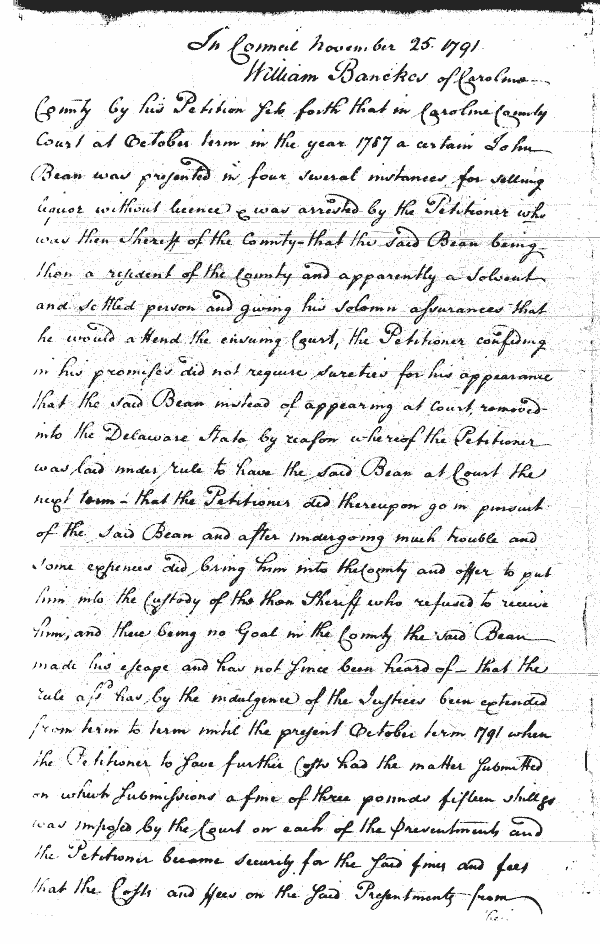 In Council November 25. 1791
William Banckes of Caroline
County by his Petition sets forth that in Caroline County
Court at October term in the year 1787 a certain John
Bean was presented in four several instances for selling
liquor without licence & was arrested by the Petitioner who
was then Sheriff of the County – that the said Bean being
then a resident of the County and apparently a solvent
and settled person and giving his solemn assurances that
he would attend the ensuing Court, the Petitioner confiding
in his promises did not require sureties for his appearance
that the said Bean instead of appearing at Court, removed
into the Delaware State by reason whereof the Petitioner
was laid under rule to have the said Bean at Court the
next term – that the Petitioner did thereupon go in pursuit
of the said Bean and after undergoing much trouble and
some expences did, bring him into the County and offer to put
him into the Custody of the then Sheriff who refused to receive
him, and there being no Goal in the County the said Bean
made his escape and has not since been heard of – that the
rule afsd has, by the indulgence of the Justices been extended
from term to term until the present October term 1791 when
the Petitioner to save further Costs had the matter submitted
on which submissions a fine of three pounds fifteen shillgs
was imposed by the Court on each of the Presentments and
the Petitioner became security for the said fines and fees
that the Costs and ffees on the said Presentments from